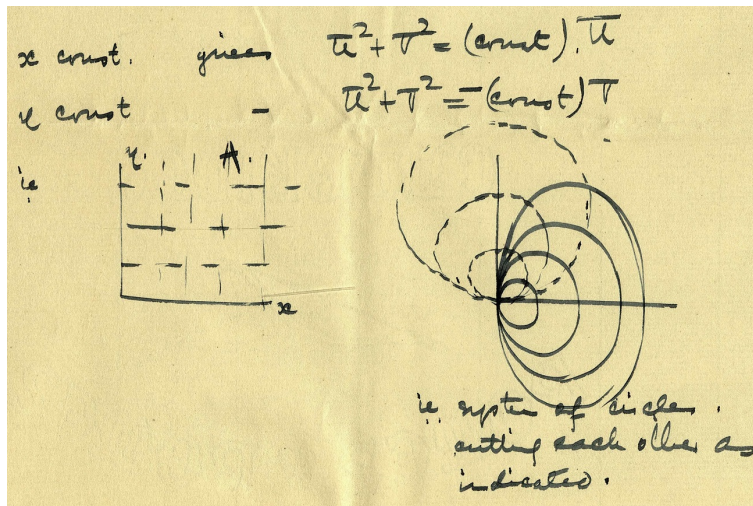 x const. gives ū² + v̄² = (const). ū
y const - ū² + v̄² = -(const) v̄
ie
y. A.
x
ie system of circles.
cutting each other as
indicated.